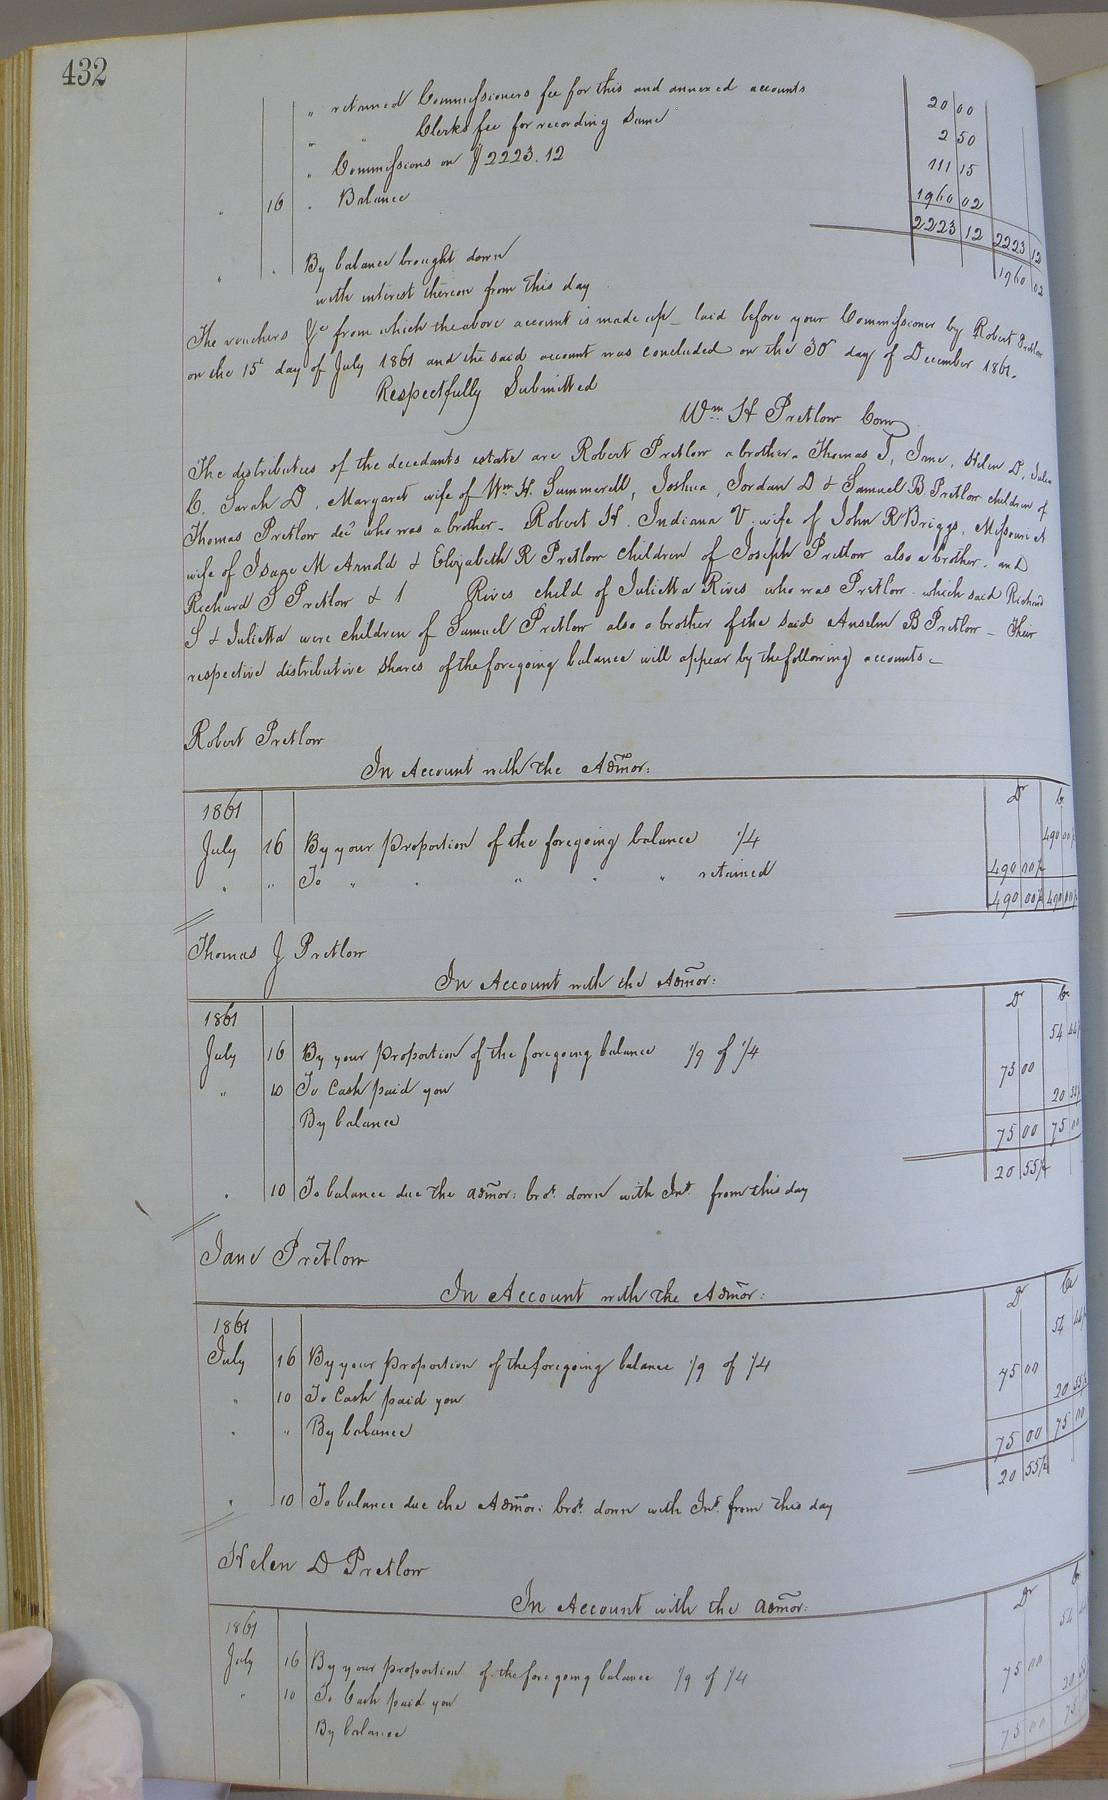 432
" retained Commissioners fee for this and annexed accounts 20 00
" " Clerks fee for recording Same 2 50
" Commissions on $2223.12 111 15
" 16 " Balance 1960 02
2223 12 2223 12
" " By balance brought down 1960 02
with interest thereon from this day
The vouchers &c from which the above account is made up laid before your Commissioner by Robert Pretlow
on the 15th day of July 1861 and the said account was concluded on the 30th day of December 1861.
Respectfully Submitted
Wm H Pretlow Comr
The distributees of the decedants estate are Robert Pretlow a brother. Thomas J, Jane, Helen D,
C. Sarah D, Margaret wife of Wm H. Summerell, Joshua, Jordan D & Samuel B Pretlow children of
Thomas Pretlow decd who was a brother. Robert H. Indiana V. wife of John R Briggs, Missouri A
wife of Isaac M Arnold & Elizabeth R Pretlow children of Joseph Pretlow also a brother. and
Richard S Pretlow & 1 Rives child of Julietta Rives who was Pretlow. which said Richard
S & Julietta were children of Samuel Pretlow also a brother of the said Anselm B Pretlow — Their
respective distributive shares of the foregoing balance will appear by the following accounts.
Robert Pretlow
In Account with the Admor:
Dr Cr
1861
July 16 By your proportion of the foregoing balance 1/4 490 00½
" " To " " " " " retained 490 00½
490 00½ 490 00½
Thomas J Pretlow
In Account with the Admor:
Dr Cr
1861
July 16 By your proportion of the foregoing balance 1/9 of 1/4 54 44½
" 10 To Cash paid you 75 00
By balance 20 55½
75 00 75 00
" 10 To balance due the admor: brot. down with Int. from this day 20 55½
Jane Pretlow
In Account with the Admor:
Dr Cr
1861
July 16 By your proportion of the foregoing balance 1/9 of 1/4 54 44½
" 10 To Cash paid you 75 00
" " By balance 20 55½
75 00 75 00
" 10 To balance due the Admor: brot. down with Int. from this day 20 55½
Helen D Pretlow
In Account with the admor:
Dr Cr
1861
July 16 By your proportion of the foregoing balance 1/9 of 1/4 54
" 10 To Cash paid you 75 00
By balance 20
75 00 75